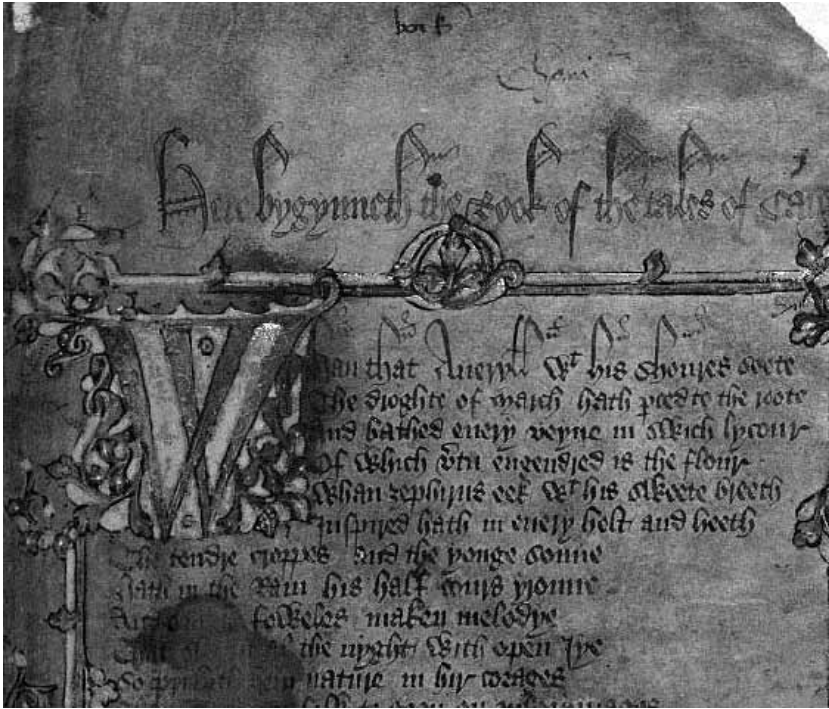 Here bygynneth the Book of the tales of Cau
Whan that Aueryll wt his shoures soote
The droghte of march hath pced to the roote
And bathed euery veyne in swich lycour
Of which vtu engendred is the flour
Whan zephirus eek wt his swete breeth
Inspired hath in euery holt and heeth
The tendre croppes and the yonge sonne
Hath in the Ram his half cours yronne
And foweles maken melodye
That the nyght with open Iye
So priketh hem nature in hir corages
folk to goon on pilgrymages